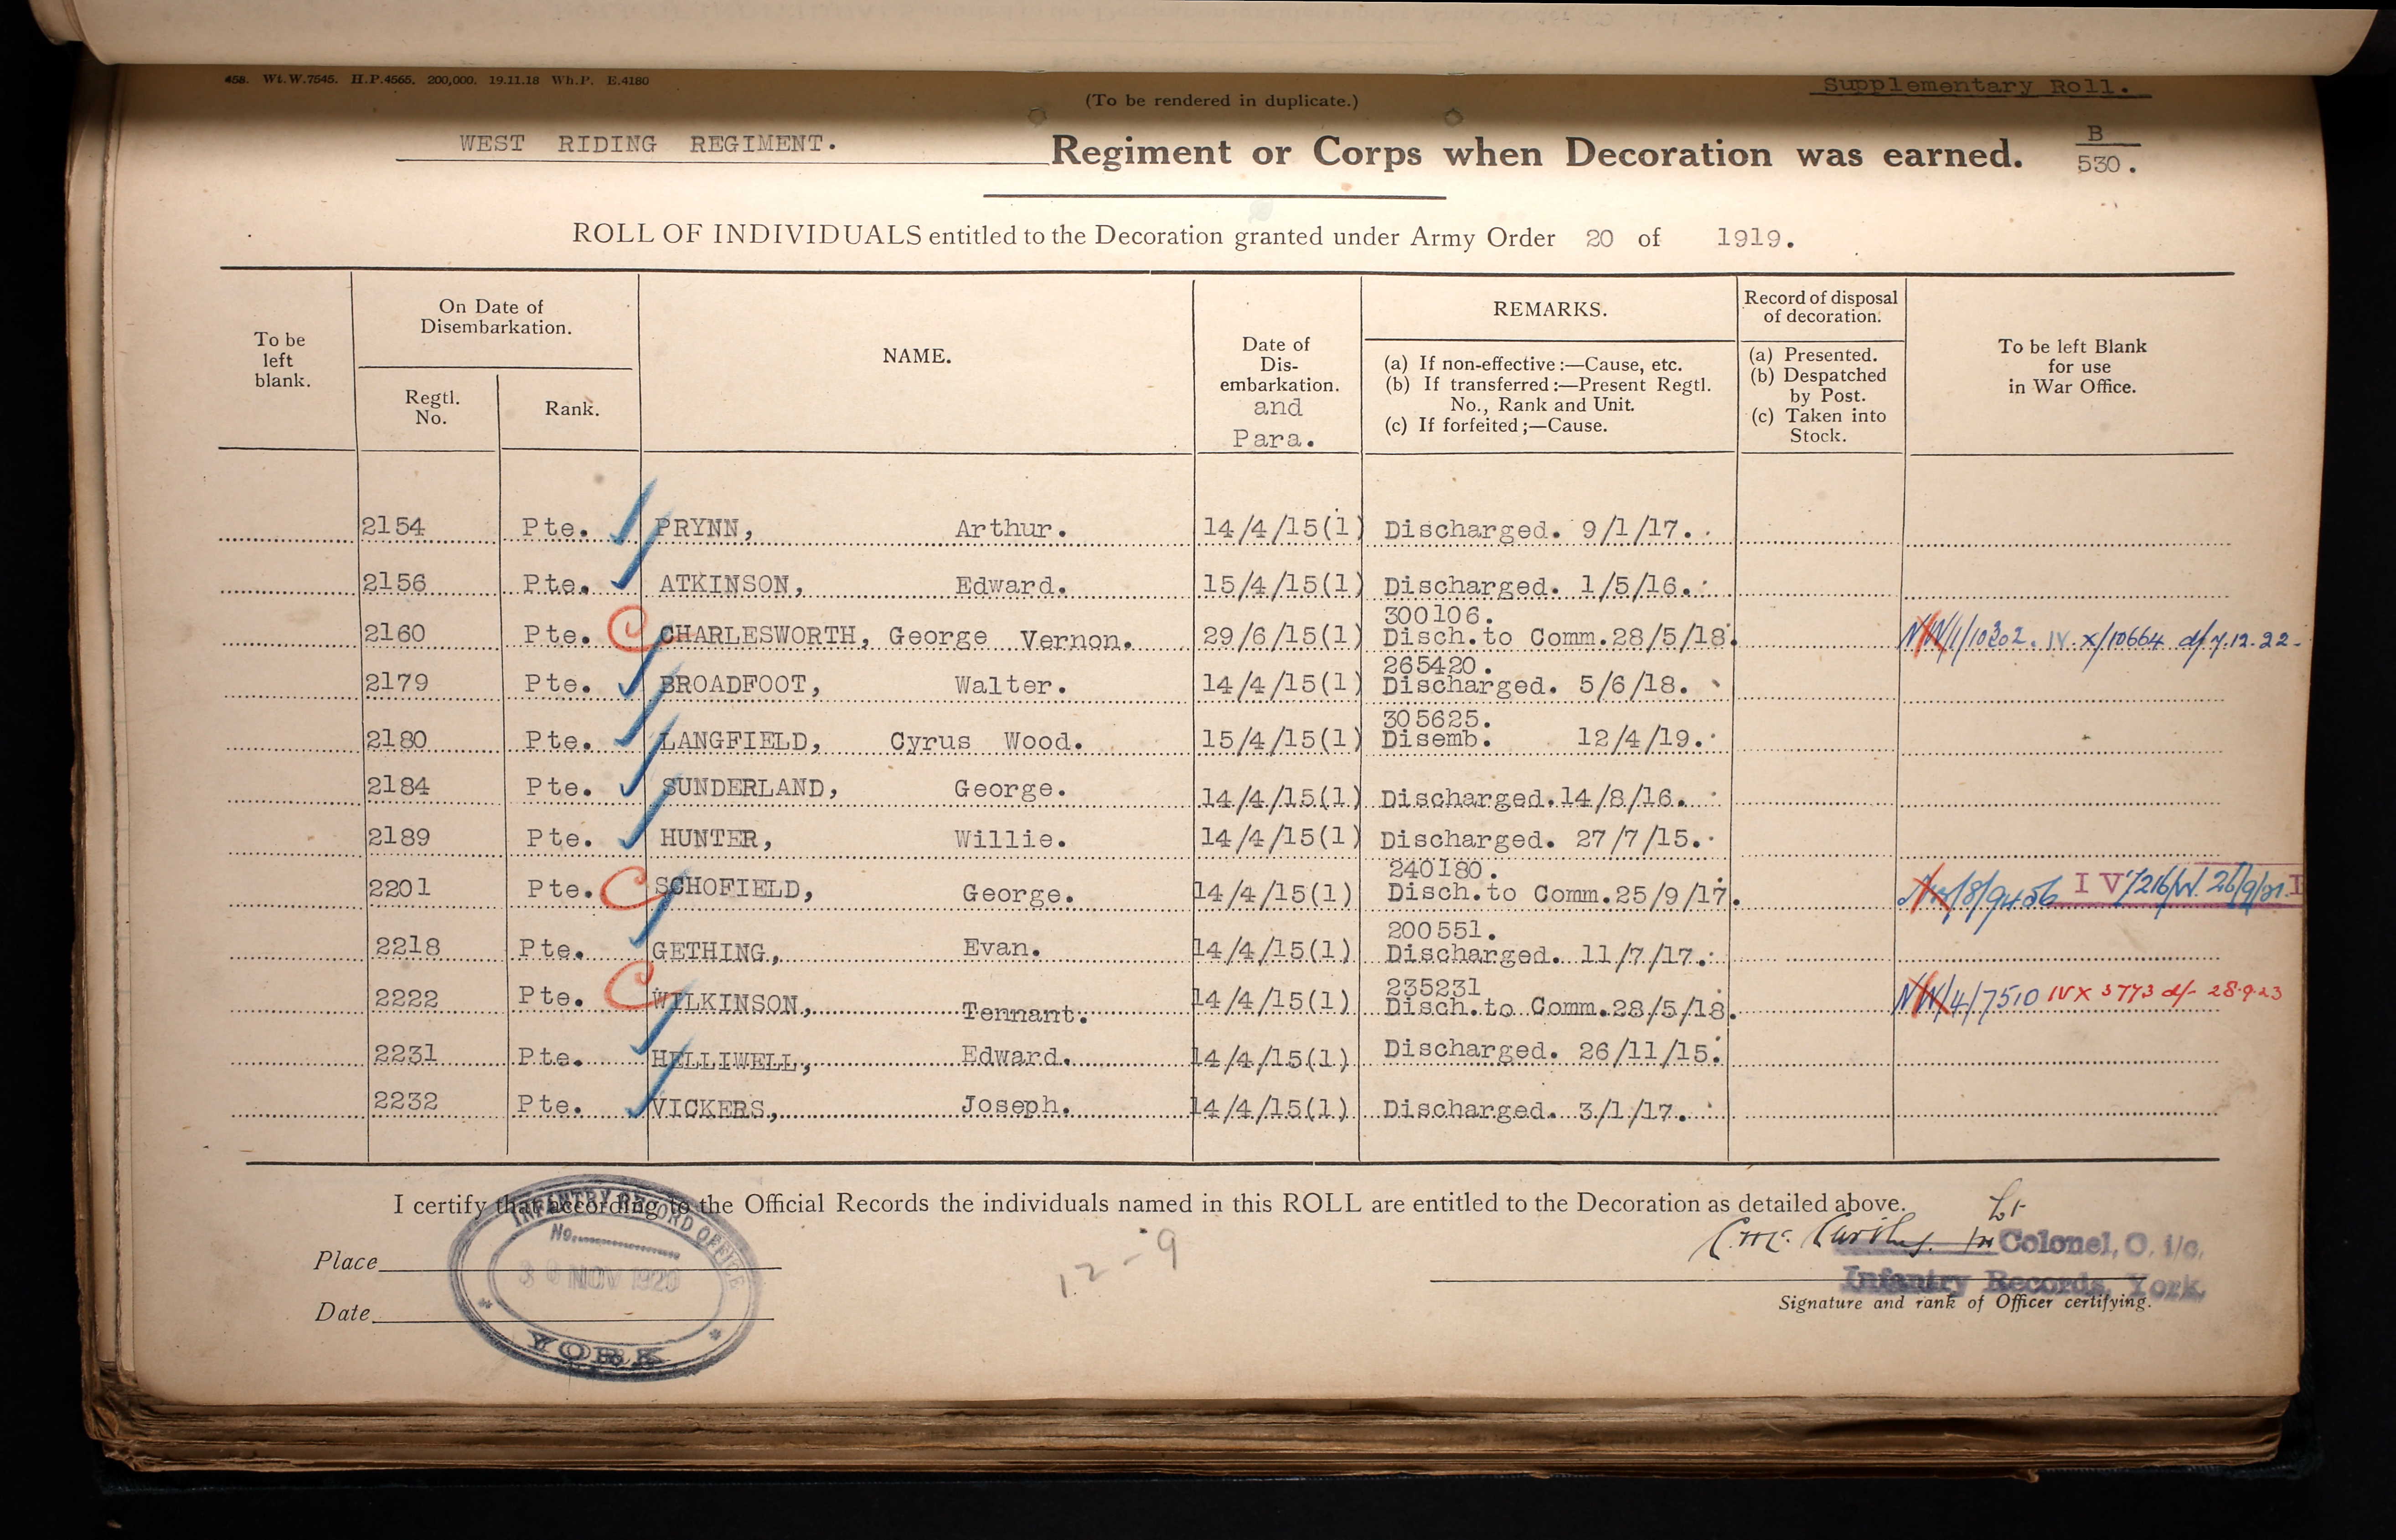 458. Wt.W.7545. H.P.4565. 200,000. 19.11.18 Wh.P. E.4180
(To be rendered in duplicate.)
Supplementary Roll.
WEST RIDING REGIMENT. Regiment or Corps when Decoration was earned. B
530.
ROLL OF INDIVIDUALS entitled to the Decoration granted under Army Order 20 of 1919.
To be left blank.
On Date of Disembarkation.
Regtl. No.
Rank.
NAME.
Date of Dis-embarkation. and Para.
REMARKS.
(a) If non-effective:—Cause, etc.
(b) If transferred:—Present Regtl. No., Rank and Unit.
(c) If forfeited;—Cause.
Record of disposal of decoration.
(a) Presented.
(b) Despatched by Post.
(c) Taken into Stock.
To be left Blank for use in War Office.
2154 Pte. PRYNN, Arthur. 14/4/15(1) Discharged. 9/1/17.
2156 Pte. ATKINSON, Edward. 15/4/15(1) Discharged. 1/5/16.
300106.
2160 Pte. C CHARLESWORTH, George Vernon. 29/6/15(1) Disch.to Comm.28/5/18. NW/1/10302. IV. X/10664 d/7.12.22
265420.
2179 Pte. BROADFOOT, Walter. 14/4/15(1) Discharged. 5/6/18.
305625.
2180 Pte. LANGFIELD, Cyrus Wood. 15/4/15(1) Disemb. 12/4/19.
2184 Pte. SUNDERLAND, George. 14/4/15(1) Discharged.14/8/16.
2189 Pte. HUNTER, Willie. 14/4/15(1) Discharged. 27/7/15.
240180.
2201 Pte. C SCHOFIELD, George. 14/4/15(1) Disch.to Comm.25/9/17. IV
200551.
2218 Pte. GETHING, Evan. 14/4/15(1) Discharged. 11/7/17.
235231
2222 Pte. C WILKINSON, Tennant. 14/4/15(1) Disch.to Comm.28/5/18. NW/4/7510 IVX 3773 d/- 28.9.23
2231 Pte. HELLIWELL, Edward. 14/4/15(1) Discharged. 26/11/15.
2232 Pte. VICKERS, Joseph. 14/4/15(1) Discharged. 3/1/17.
I certify that according to the Official Records the individuals named in this ROLL are entitled to the Decoration as detailed above.
INFANTRY RECORD OFFICE
No.
30 NOV 1920
YORK
Place
Date
12-9
Lt
Colonel, O. i/c.
Infantry Records, York.
Signature and rank of Officer certifying.